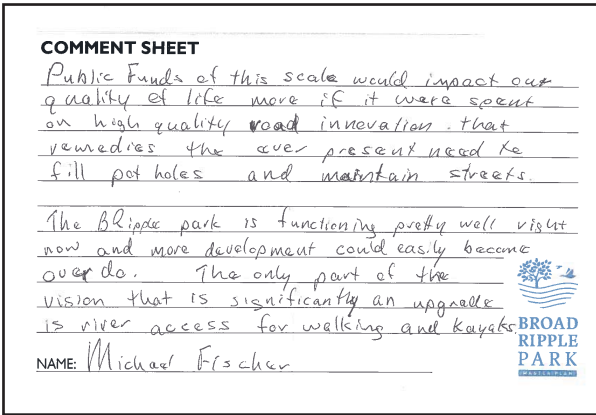 COMMENT SHEET
Public Funds of this scale would impact our
quality of life more if it were spent
on high quality road innovation that
remedies the ever present need to
fill pot holes and maintain streets.
The BRipple park is functioning pretty well right
now and more development could easily become
over do. The only part of the
vision that is significantly an upgrade
is river access for walking and kayaks.
BROAD
RIPPLE
PARK
MASTER PLAN
NAME: Michael Fischer